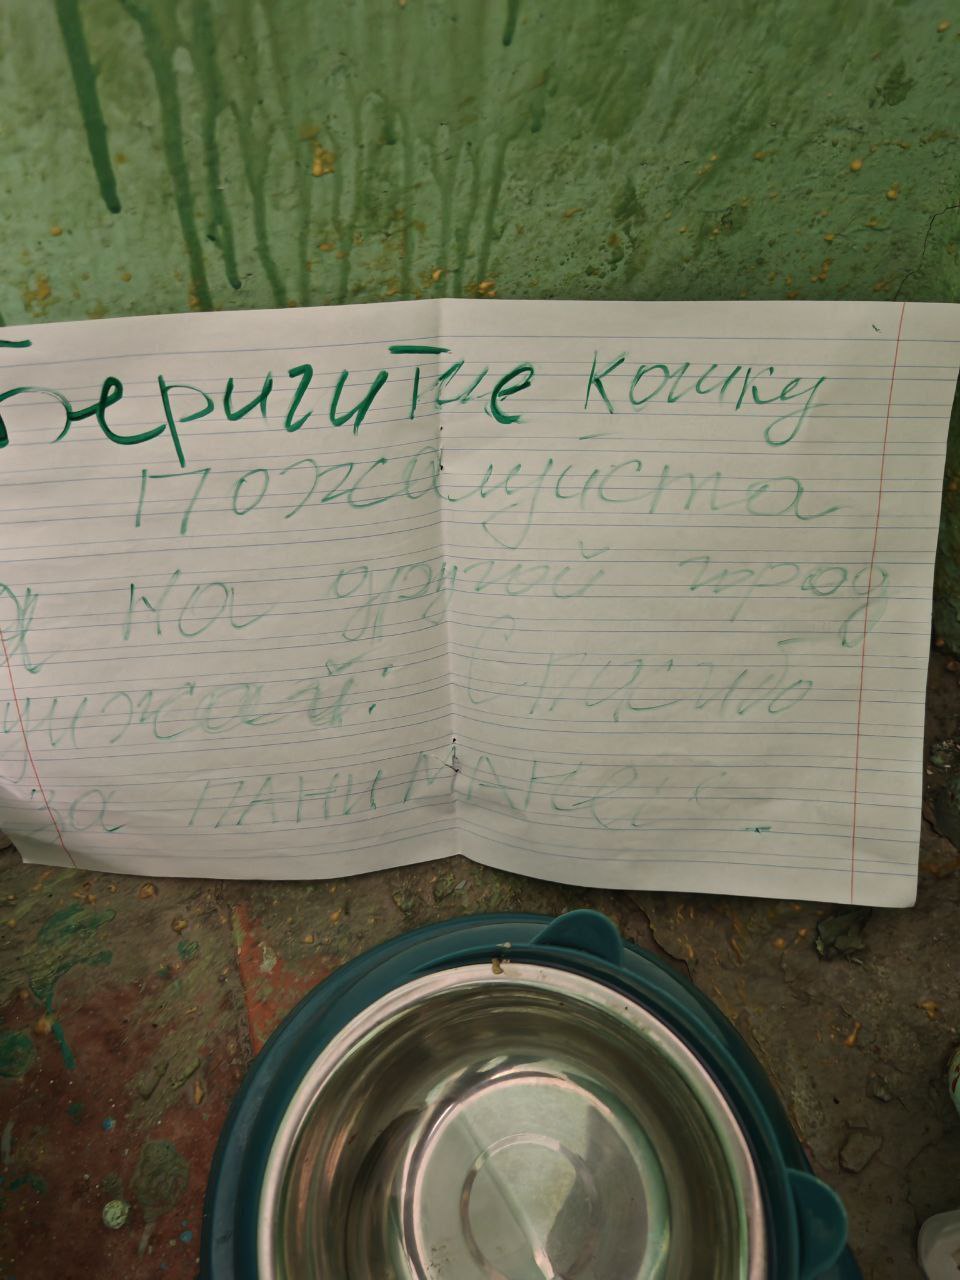 Беригитие кошку
Пожалуйста
я на другой грод
уижаай: Спасибо
за ПАНИМАНеие